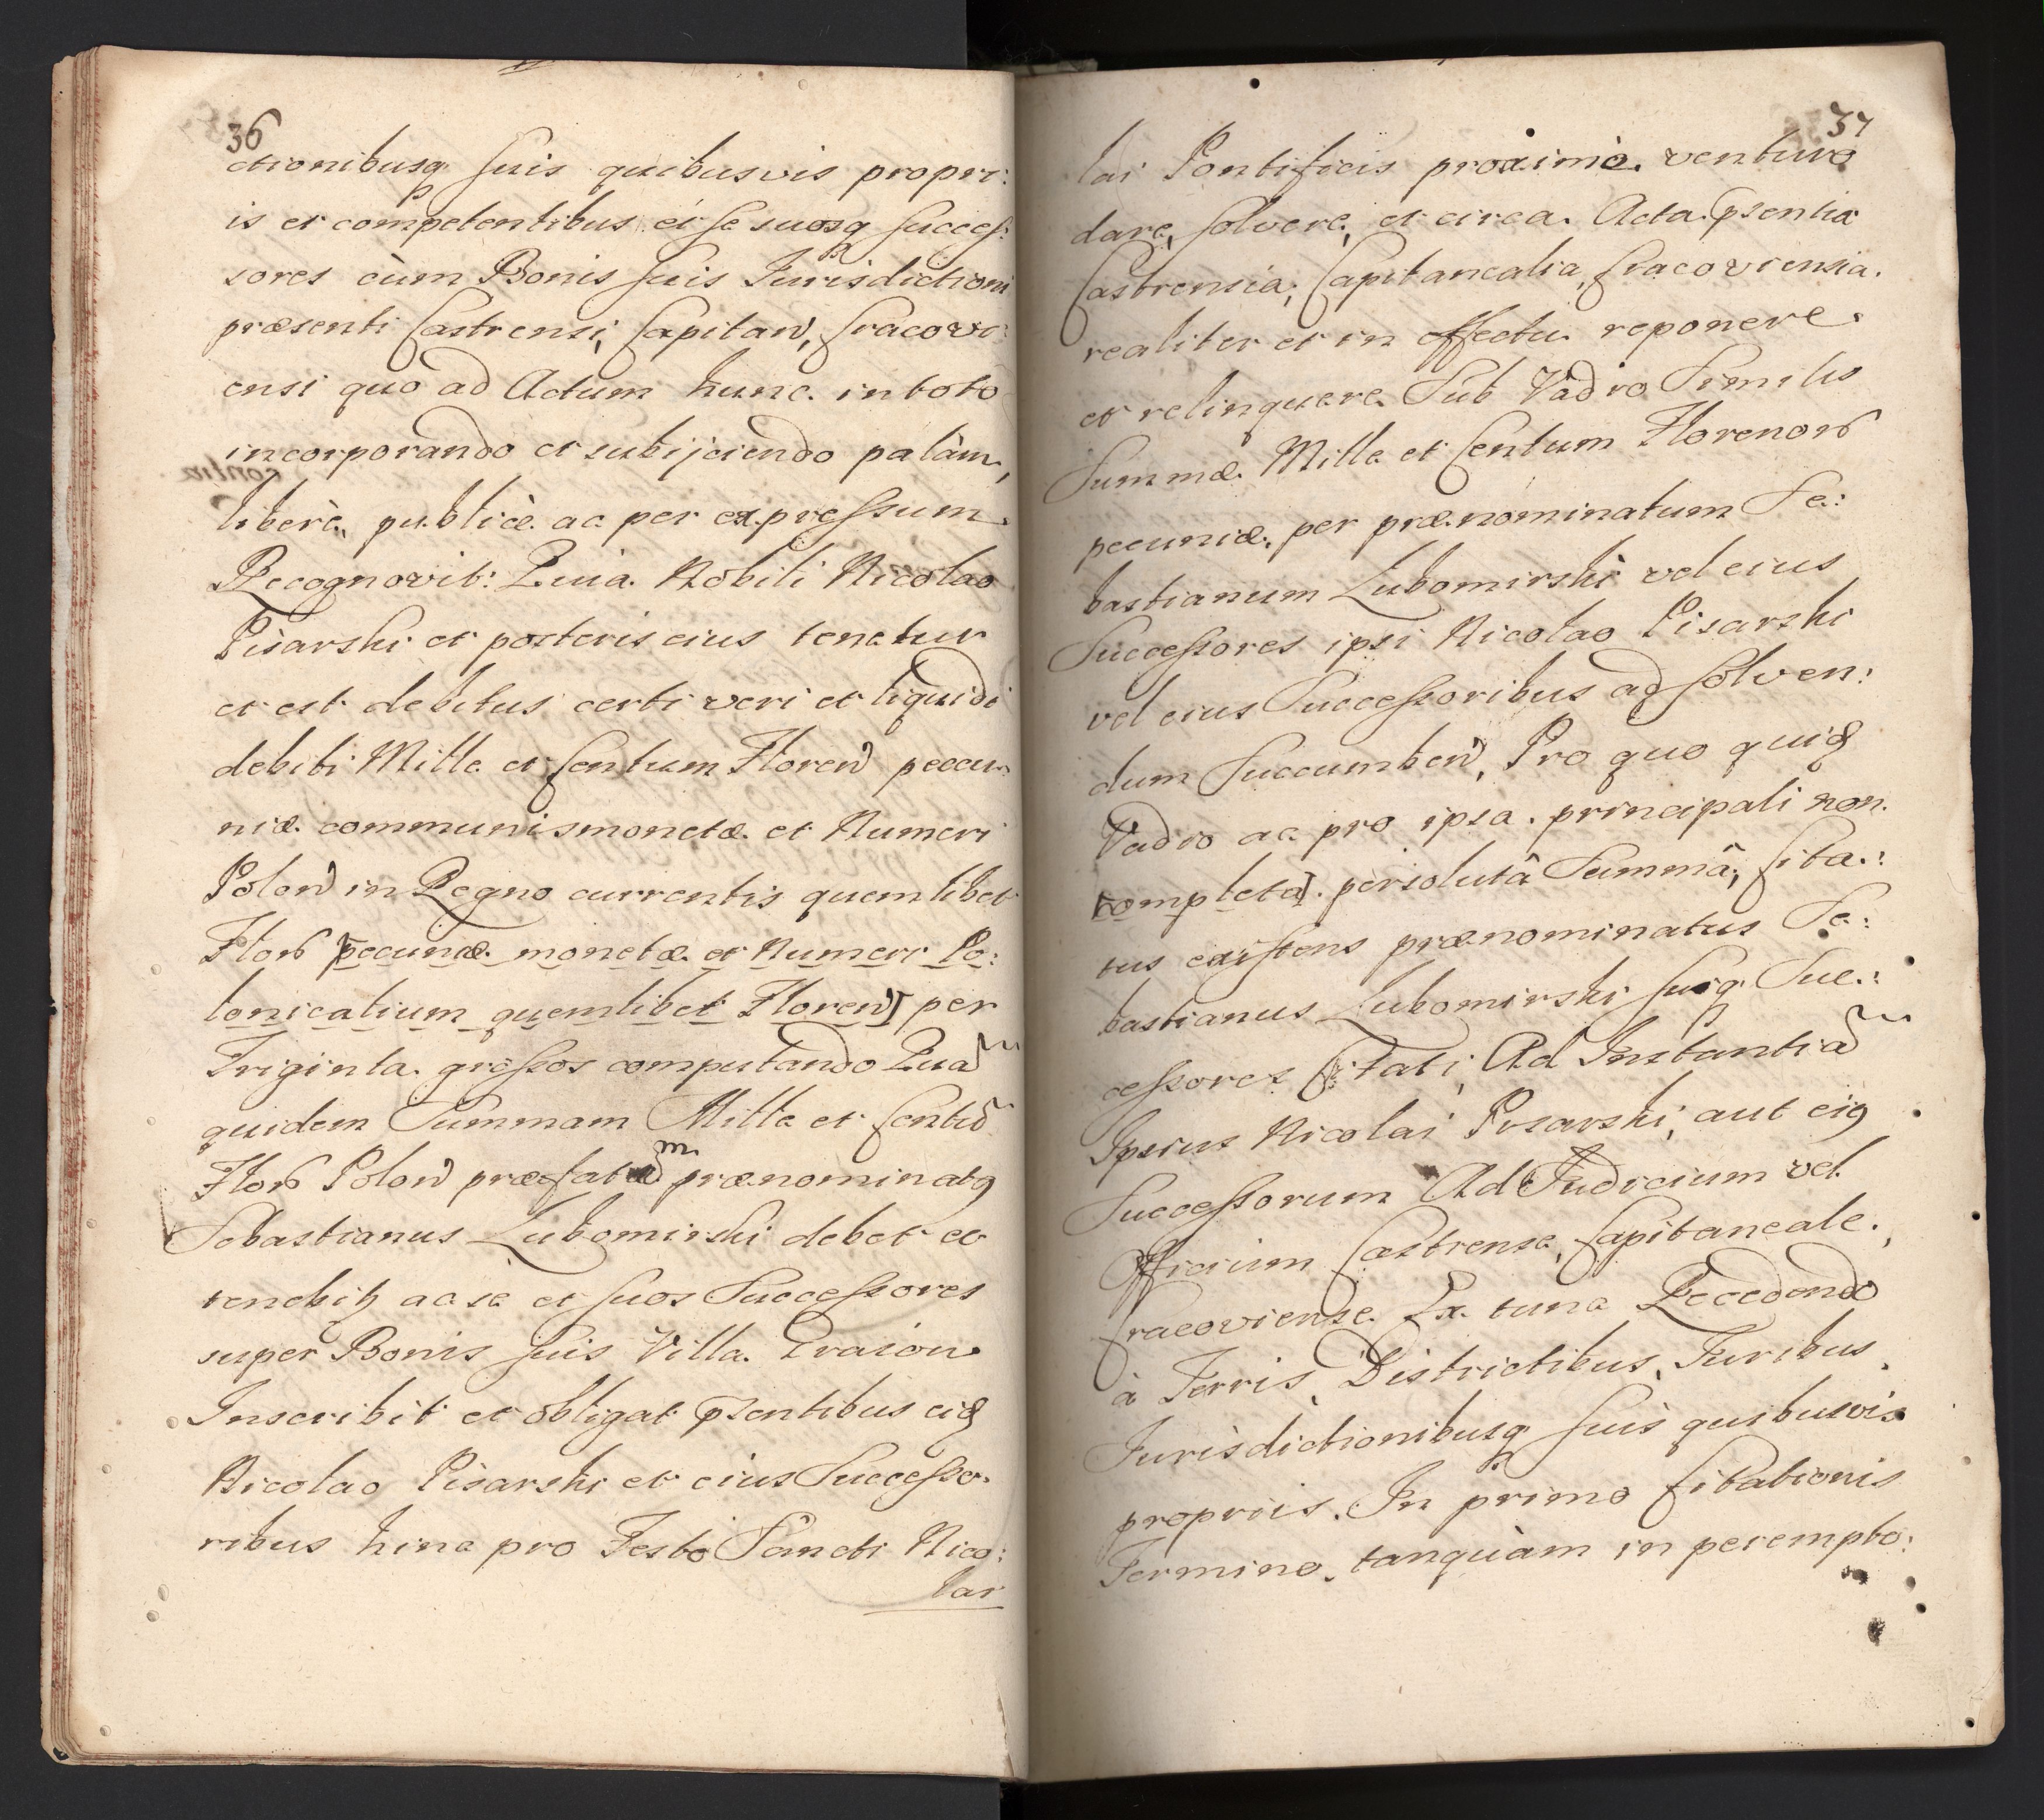 36
ctionibusq suis quibusvis propri:
is et competentibus, et se suosq succes:
sores cùm Bonis suis Jurisdictioni
præsenti Castrensi, Capitan, Cracovi:
ensi quo ad Actum hunc in toto
incorporando et subijciendo palàm,
liberè, publicè ac per expressum
Recognovit: Quia Nobili Nicolao
Pisarski et posteris eius tenetur
et est debitus certi veri et liquidi
debiti Mille et Centum Floren pecu
niæ communis monetæ et Numeri
Polon in Regno currentis quemlibet
Flor [pecuniæ monetæ et Numeri Po:
lonicalium quemlibet Floren] per
Triginta grossos computando Quam
quidem Summam Mille et Centum
Flor Polon præfatam prænominatq
Sebastianus Lubomirski debet et
tenebitq ac se et suos Successores
super Bonis suis Villa
Inscribit et obligat pzentibus eidq
Nicolao Pisarski et eius Successo.
ribus hinc pro Festo Sancti Nico:
lai
37
lai Pontificis proximè venturo
dare, solvere, et circa Acta pzentia
Castrensia, Capitanealia, Cracoviensia
realiter et in effectu reponere
et relinquere Sub Vadio Similis
Summæ Mille et Centum Florenor
pecuniæ per prænominatum Se:
bastianum Lubomirski vel eius
Successores ipsi Nicolao Pisarski
vel eius Successoribus ad solven:
dum Succumben, Pro quo quidq
Vadio ac pro ipsa principali non
[completa] persolutâ Summâ, Cita:
tus existens prænominatus Se:
bastianus Lubomirski suiq Suc:
cessores Citati, Ad Instantiam
Ipsius Nicolai Pisarski, aut eiq
Successorum Ad Judicium vel
Officium Castrense, Capitaneale,
Cracoviense Ex tunc Recedendo
à Terris, Districtibus, Juribus,
Jurisdictionibusq suis quibusvis
propriis. In primo Citationis
Termino tanquàm in perempto: